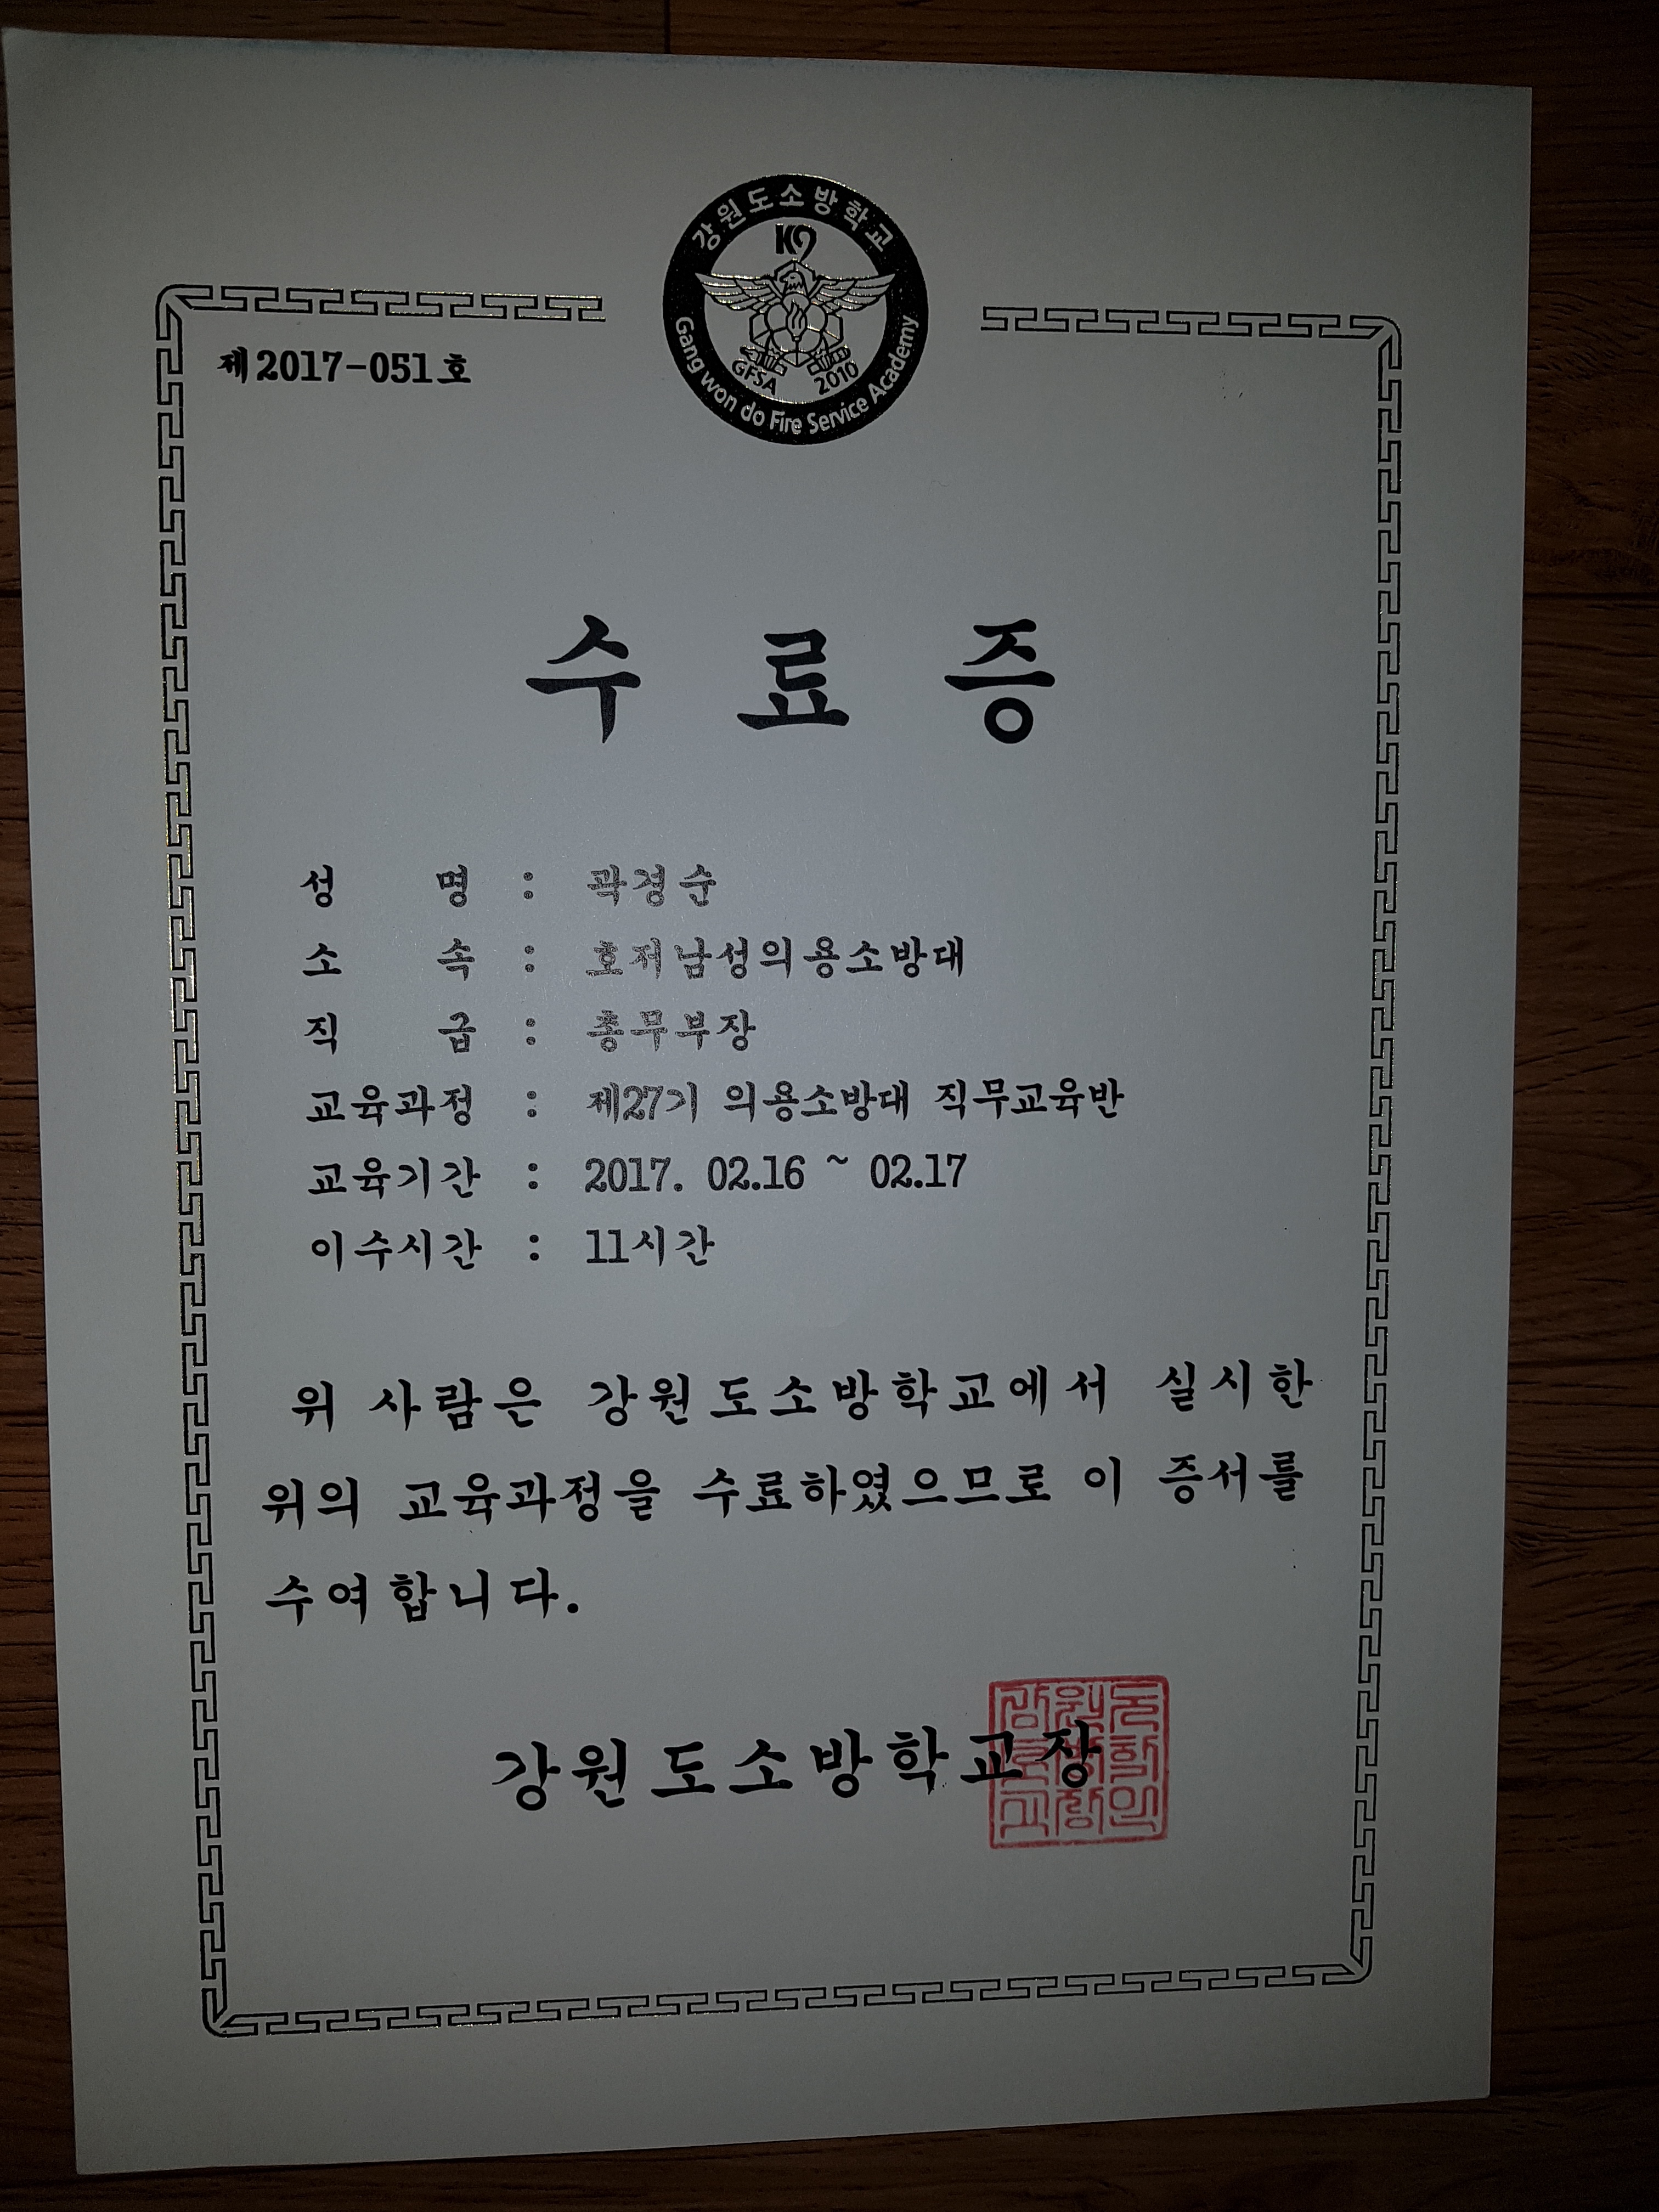 강원도소방학교
K9
GFSA 2010
Gang won do Fire Service Academy
제2017-051호
수 료 증
성 명 : 곽경순
소 속 : 호저남성의용소방대
직 급 : 총무부장
교육과정 : 제27기 의용소방대 직무교육반
교육기간 : 2017. 02.16 ~ 02.17
이수시간 : 11시간
위 사람은 강원도소방학교에서 실시한
위의 교육과정을 수료하였으므로 이 증서를
수여합니다.
강원도소방학교장
강원도
소방학
교장인